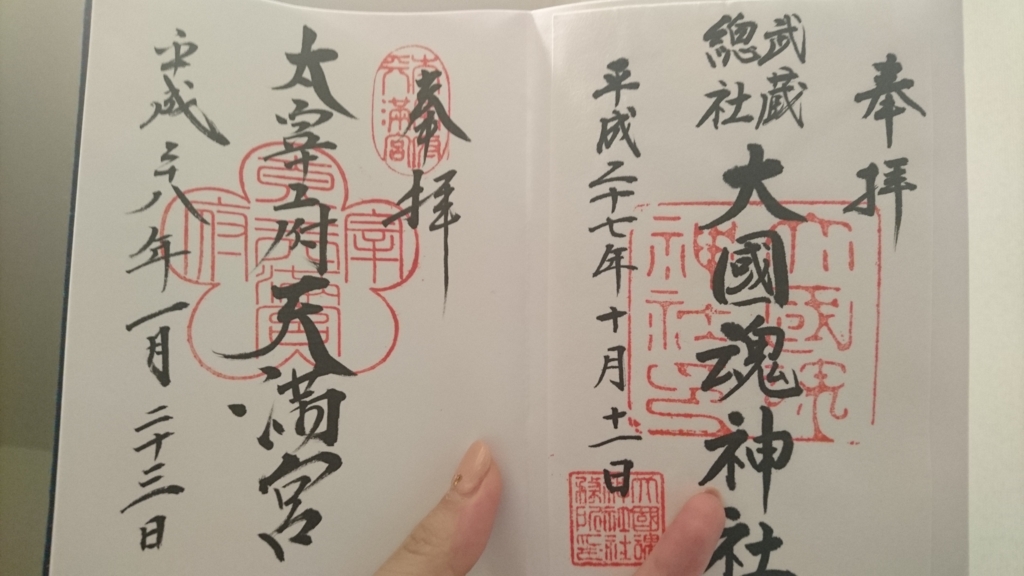 奉拝
武蔵
總社
大國魂神社
平成二十七年十月十一日
奉拝
太宰府天満宮
平成二十八年一月二十三日